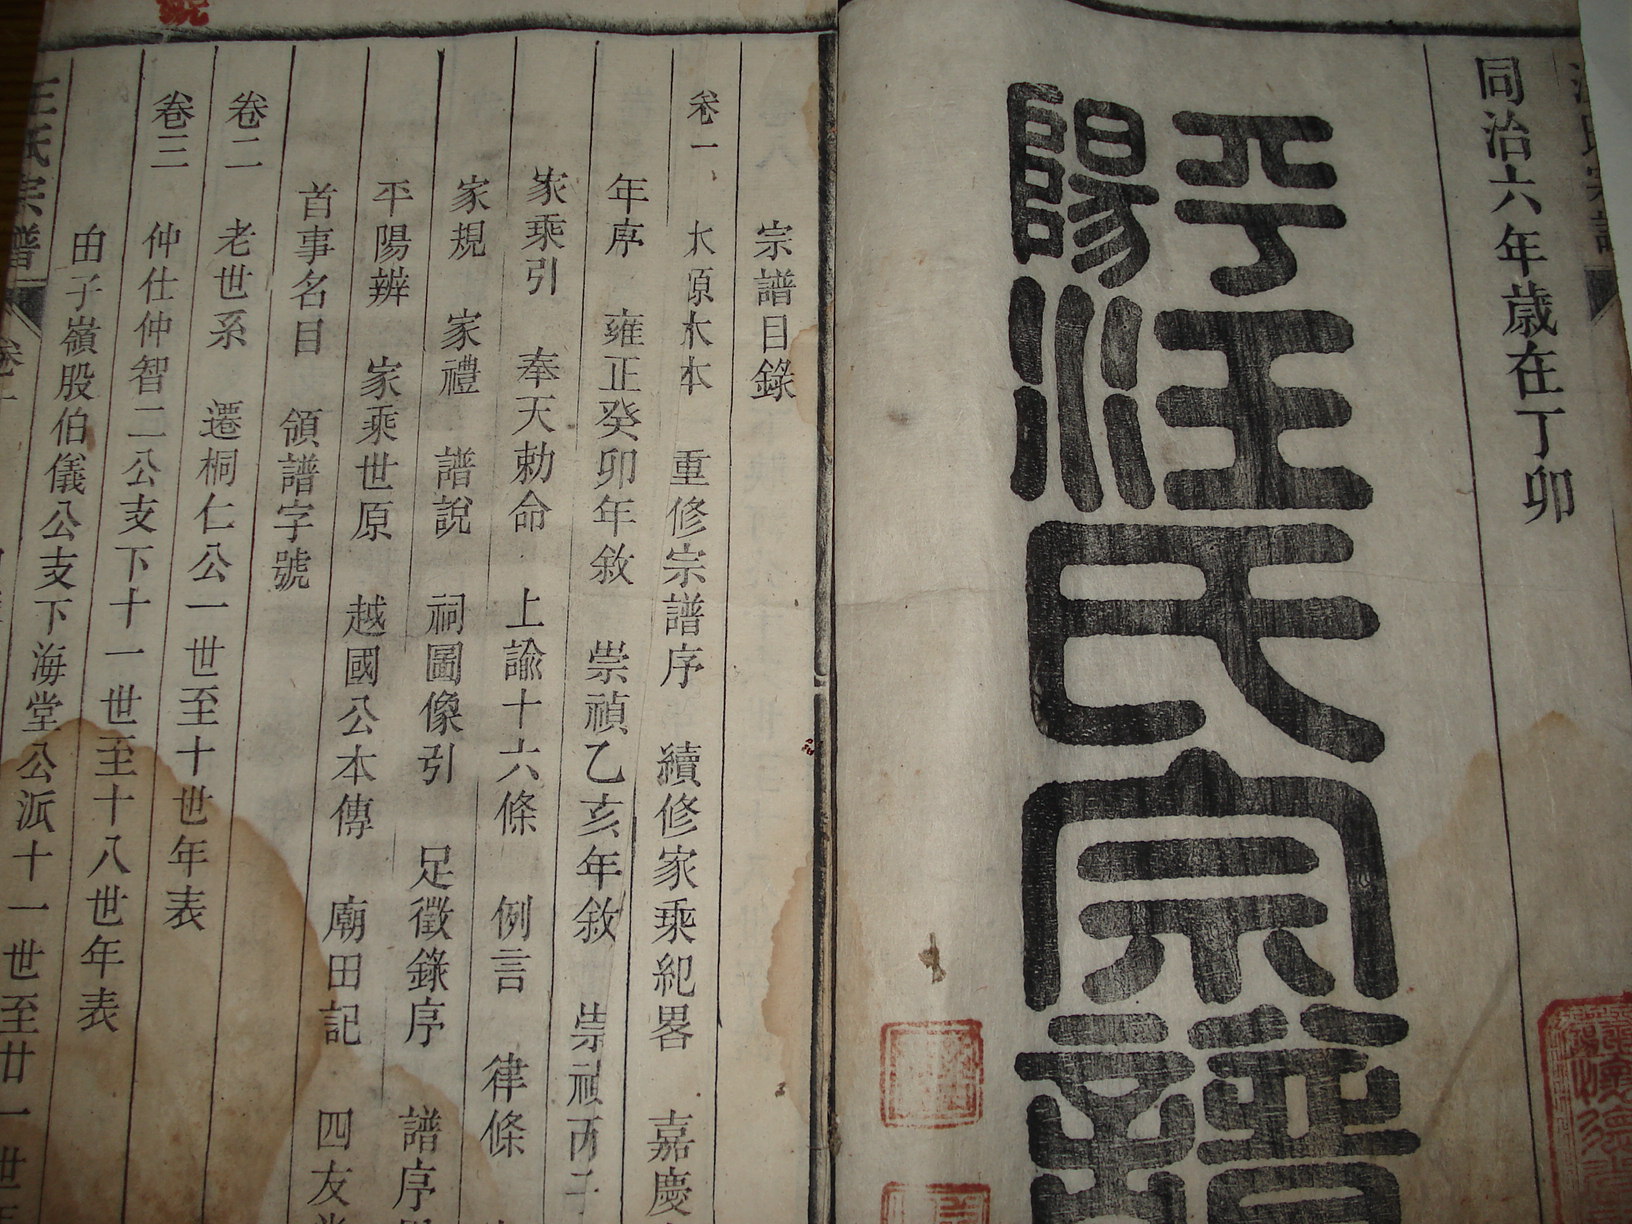 同治六年歲在丁卯
平陽汪氏宗譜
宗譜目錄
卷一 水源木本 重修宗譜序 續修家乘紀畧 嘉慶
年序 雍正癸卯年敘 崇禎乙亥年敘 崇禎丙子
家乘引 奉天勅命 上諭十六條 例言 律條
家規 家禮 譜說 祠圖像引 足徵錄序 譜序
平陽辨 家乘世原 越國公本傳 廟田記 四友
首事名目 領譜字號
卷二 老世系 遷桐仁公一世至十世年表
卷三 仲仕仲智二公支下十一世至十八世年表
由子嶺股伯儀公支下海堂公派十一世至廿一世
汪氏宗譜 卷一